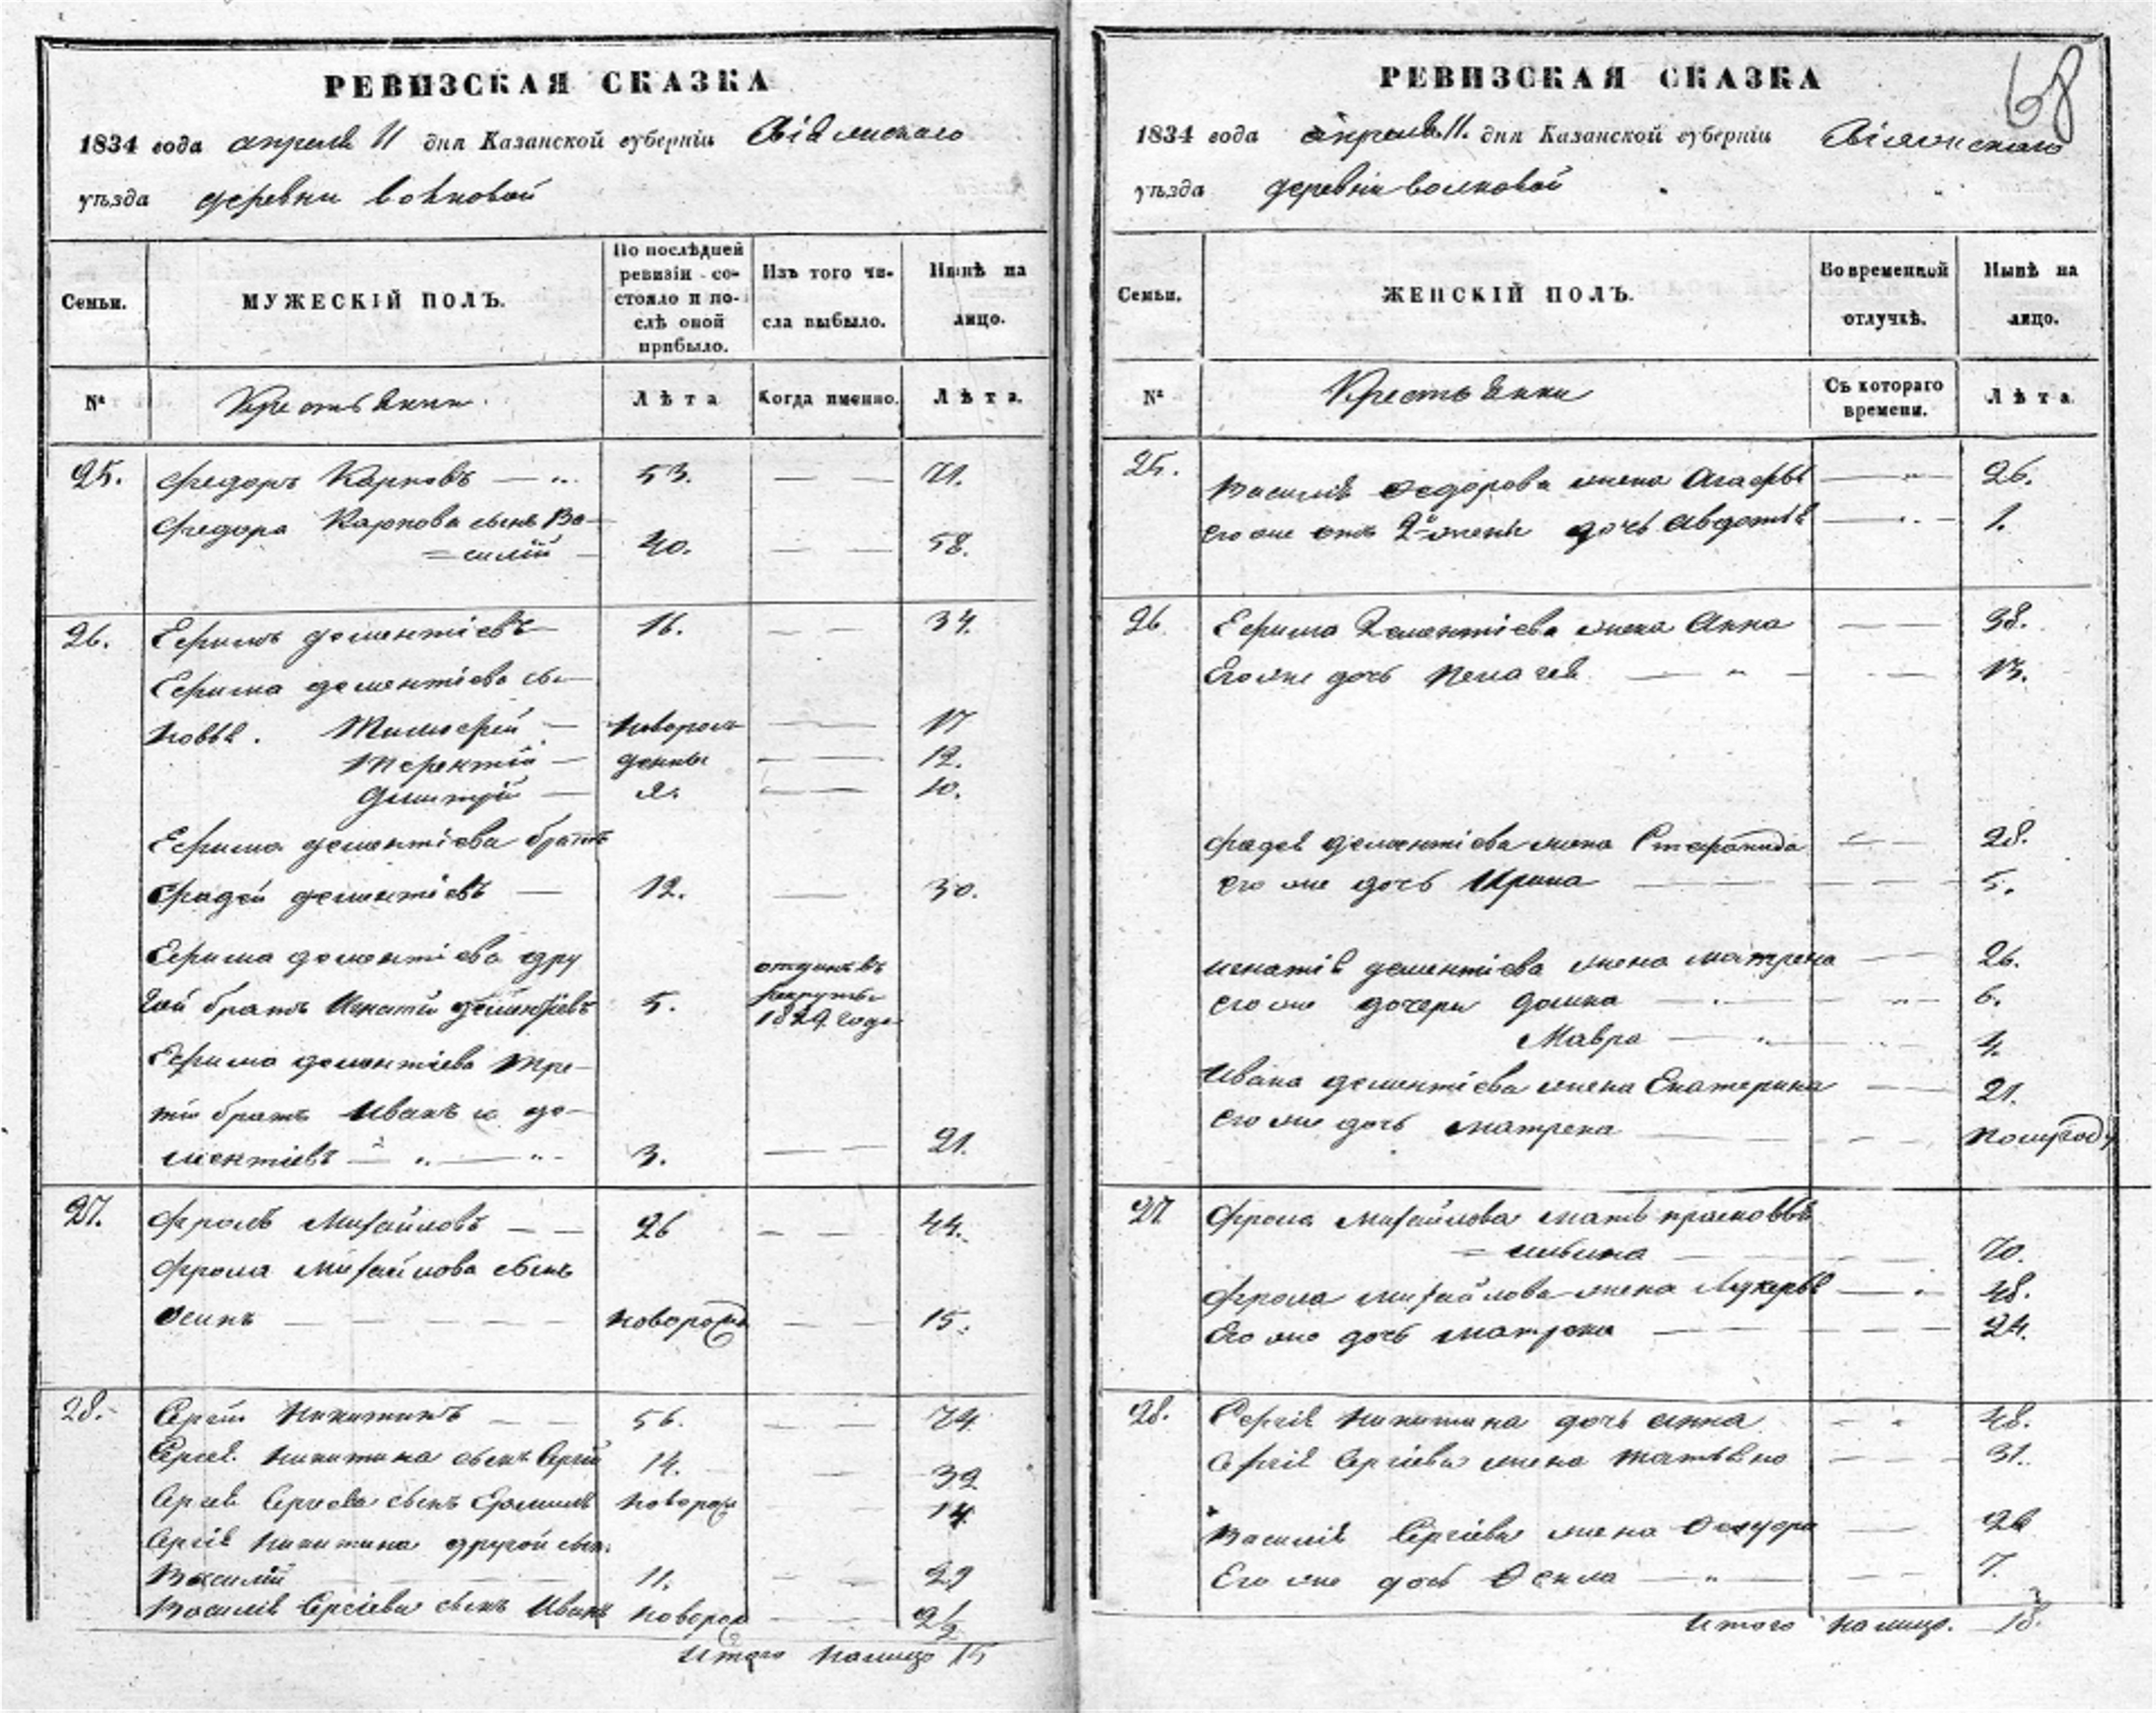 РЕВИЗСКАЯ СКАЗКА
1834 года апреля 11 дня Казанской губерніи Свіяжскаго
уѣзда деревни Волковой
Семьи.
МУЖЕСКІЙ ПОЛЪ.
По послѣдней
ревизіи со-
стояло и по-
слѣ оной
прибыло.
Изъ того чи-
сла выбыло.
Нынѣ на
лицо.
№
Крестьянин
Лѣта
Когда именно.
Лѣта.
25. Федоръ Карповъ 53. 71.
Федора Карпова сынъ Ва-
=силій 40. 58.
26. Ефимъ Дементіевъ 16. 34.
Ефима Дементіева сы-
новья. Тимофей новорож 17
Терентій денны 12.
Дмитрій я. 10.
Ефима Дементіева братъ
Фадей Дементіевъ 12. 30.
Ефима Дементіева дру
гой братъ Игнатій Дементіевъ 5. отданъ въ
рекруты
1829 года
Ефима Дементіева тре-
тій братъ Иванъ де-
ментіевъ 3. 21.
27. Фролъ Михайловъ 26 44.
Фрола Михайлова сынъ
Осипъ новорож 15.
28. Сергій Никитинъ 56. 74.
Сергея Никитина сынъ Сергій 14. 32
Сергея Сергеева сынъ Ермилъ новорож 14
Сергія Никитина другой сын.
Василій 11. 29
Василія Сергіева сынъ Иванъ новорож 2½
Итого налицо 15
68
РЕВИЗСКАЯ СКАЗКА
1834 года апреля 11. дня Казанской губерніи Свіяжскаго
уѣзда деревни Волковой
Семьи.
ЖЕНСКІЙ ПОЛЪ.
Во временной
отлучкѣ.
Нынѣ на
лицо.
№
Крестьянки
Съ котораго
времени.
Лѣта
25. Василія Федорова жена Агафья 26.
его же отъ 2й жены дочь Авдотья 1.
26 Ефима Дементіева жена Анна 38.
Его же дочь Пелагея 13.
Фадея Дементіева жена Степанида 28.
его же дочь Ирина 5.
Игнатія Дементіева жена Матрена 26.
его же дочери Домна 6.
Мавра 4.
Ивана Дементіева жена Екатерина 21.
его же дочь Матрена полугоду
27 Фрола Михайлова мать Прасковья
=ильина 70.
Фрола Михайлова жена Лукерья 48.
Его же дочь Матрена 24.
28. Сергія Никитина дочь Анна 48.
Сергія Сергіева жена Татьяна 31.
Василія Сергіева жена Федора 26
Его же дочь Фекла 7.
Итого налицо. 18.